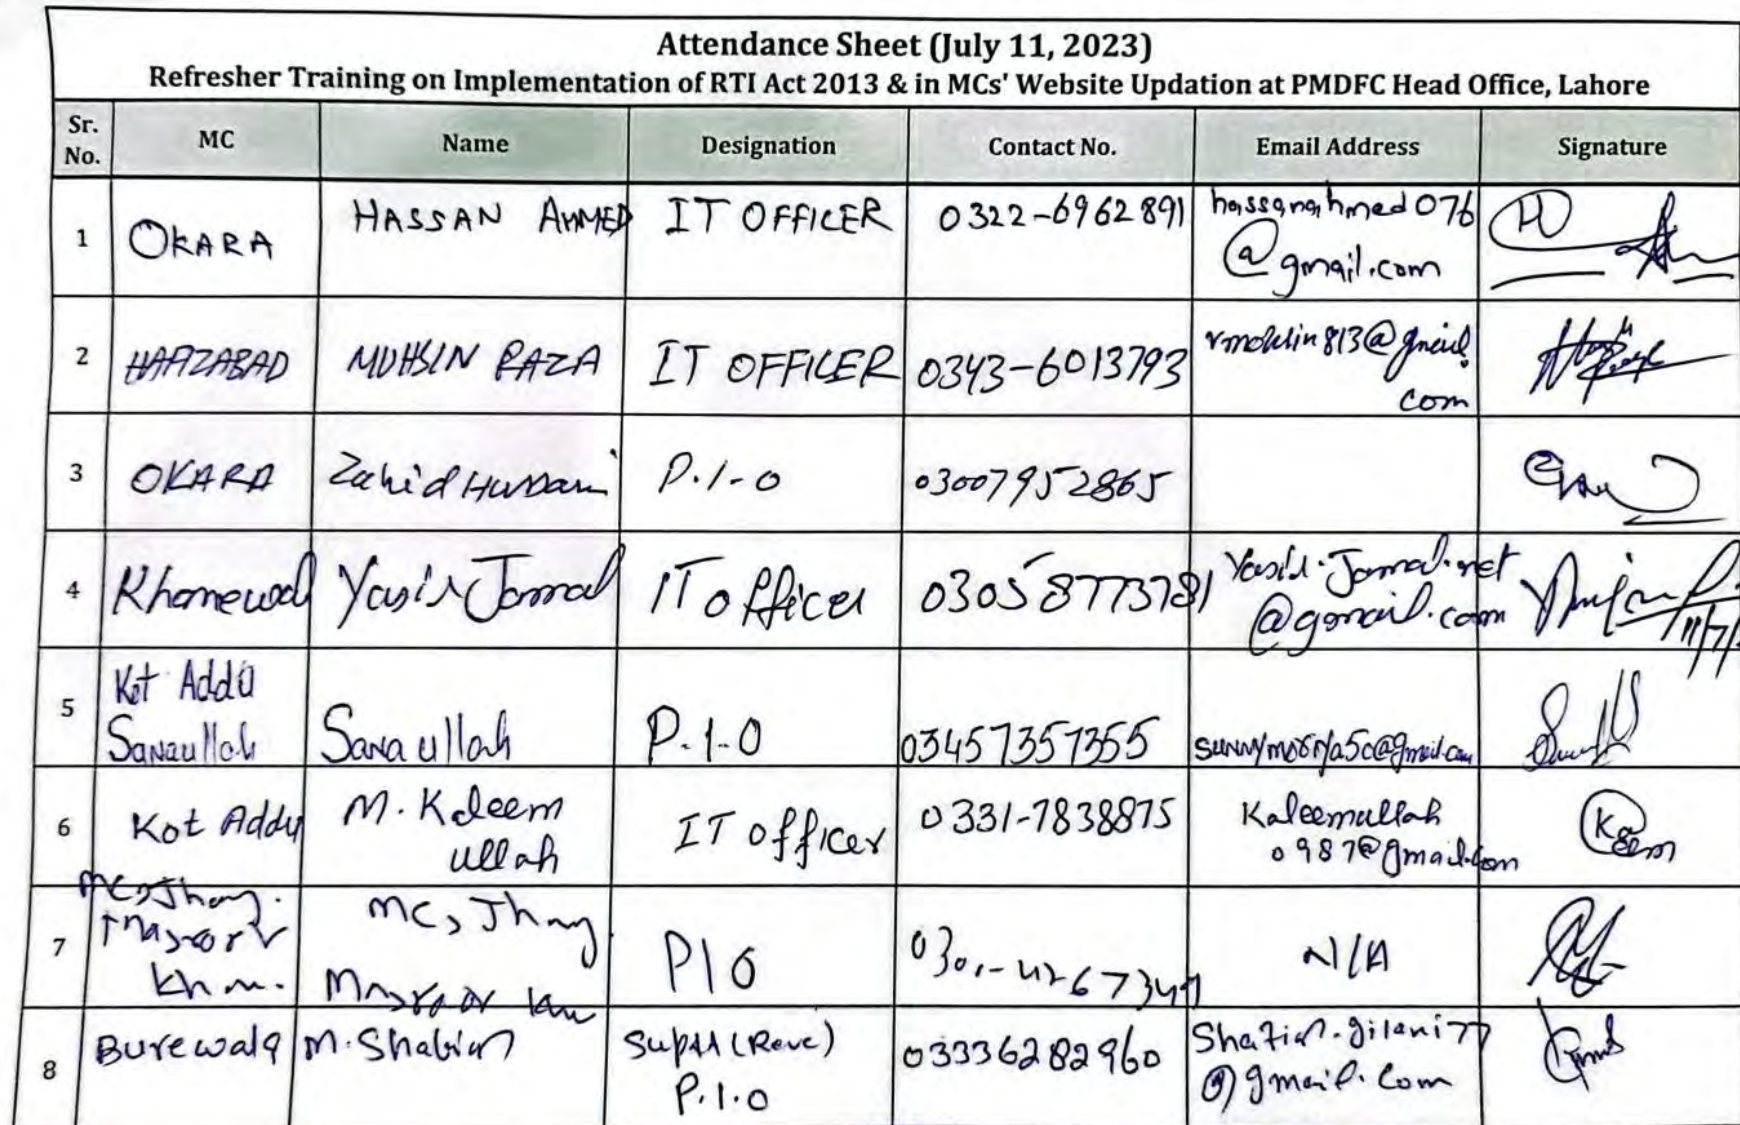 Attendance Sheet (July 11, 2023)
Refresher Training on Implementation of RTI Act 2013 & in MCs' Website Updation at PMDFC Head Office, Lahore
Sr. No. MC Name Designation Contact No. Email Address Signature
1 OKARA HASSAN AHMED IT OFFICER 0322-6962891 hassanahmed076
@gmail.com
2 HAFIZABAD MUHSIN RAZA IT OFFICER 0343-6013793 rmohsin813@gmail.
com
3 OKARA Zahid Hussain P.I-O 03007952865
4 Khanewal Yasir Jamal IT officer 03058773781 Yasir.Jamal.net
@gmail.com 11/7/
5 Kot Addu
Sanaullah Sanaullah P.I.O 03457357355
6 Kot Addu M. Kaleem
ullah IT officer 0331-7838875 Kaleemullah
0987@gmail.com Kaleem
7 MC, Jhang.
Masroor
Khan. MC, Jhang
Masroor PIO N/A
8 Burewala M. Shabir (Reve)
P.I.O 03336282960
@gmail.com